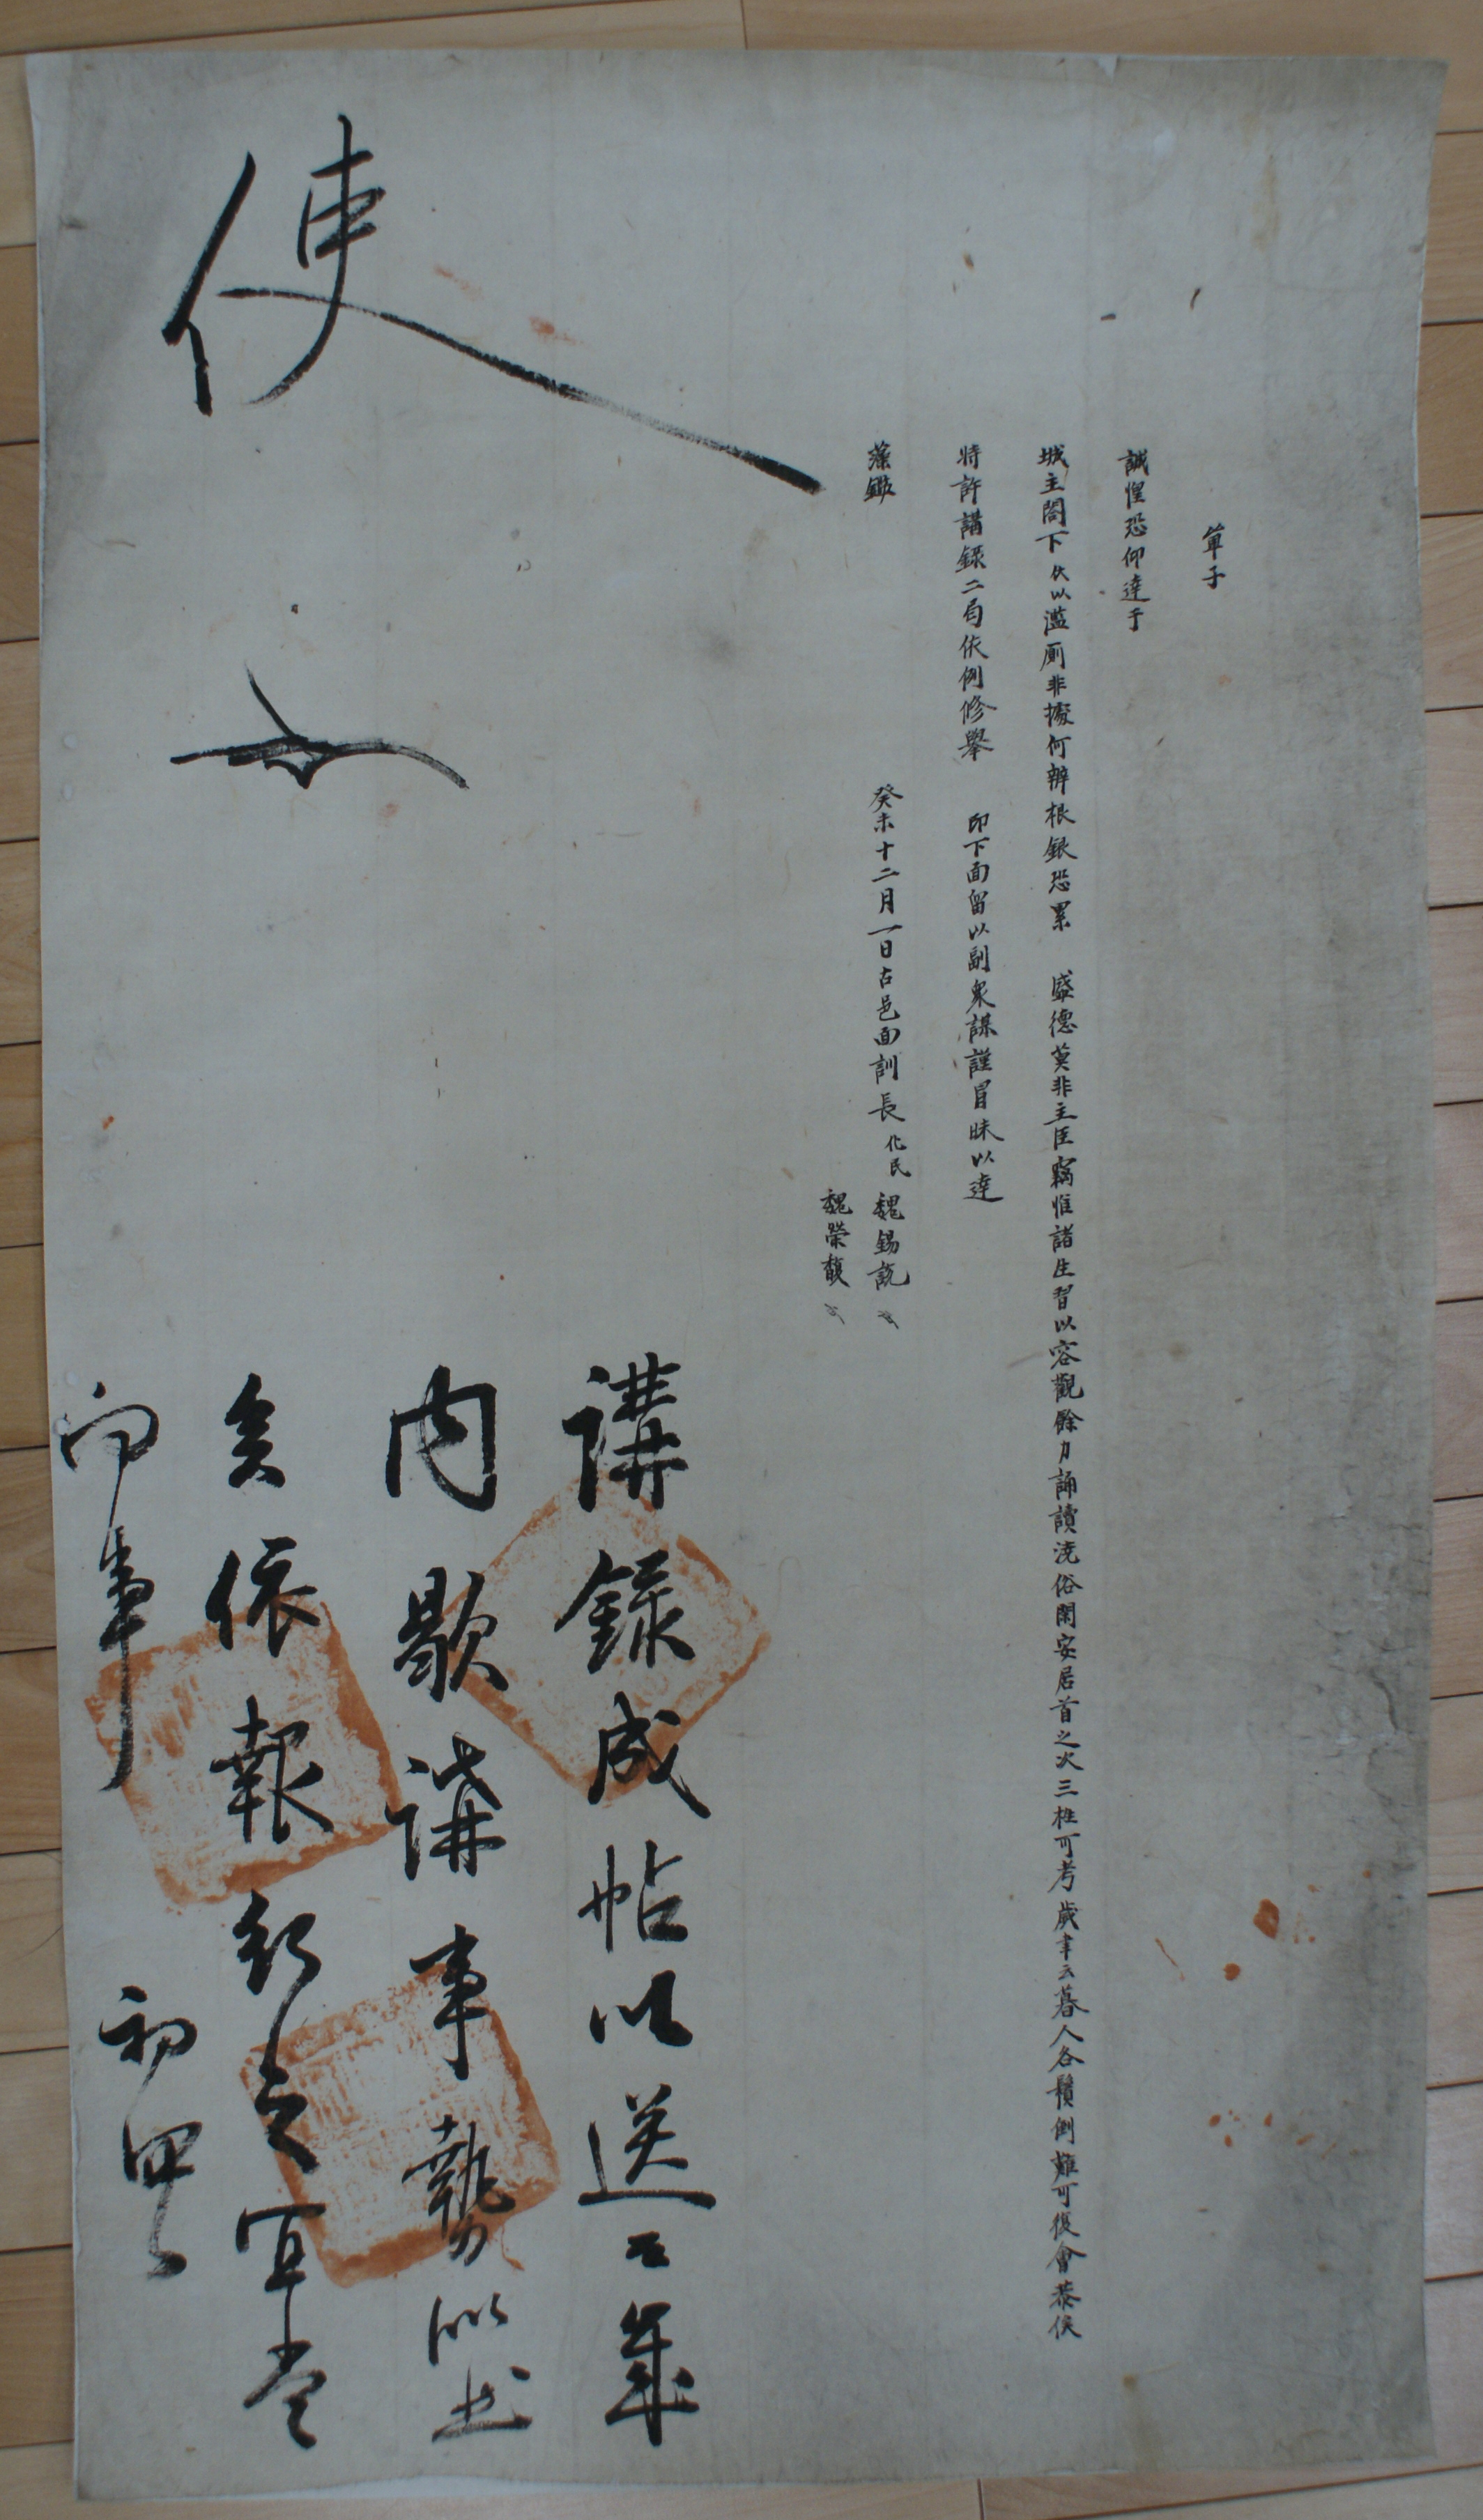 單子
誠惶恐仰達于
城主閤下伏以濫厠非據何辨根銀恐累 盛德莫非主臣竊惟諸生習以容觀餘力誦讀澆俗閑安居首之次三柱可考歲聿云暮人各鬢倒難可復會恭俟
特許講錄二局依例修擧 印下面留以副衆謀謹冒昧以達
藻鑑
癸未十二月一日古邑面訓長化民 魏錫
魏榮馥
講錄成帖以送只歲
內歇講事勢似出
矣依報 之宜當
向事
初四
使